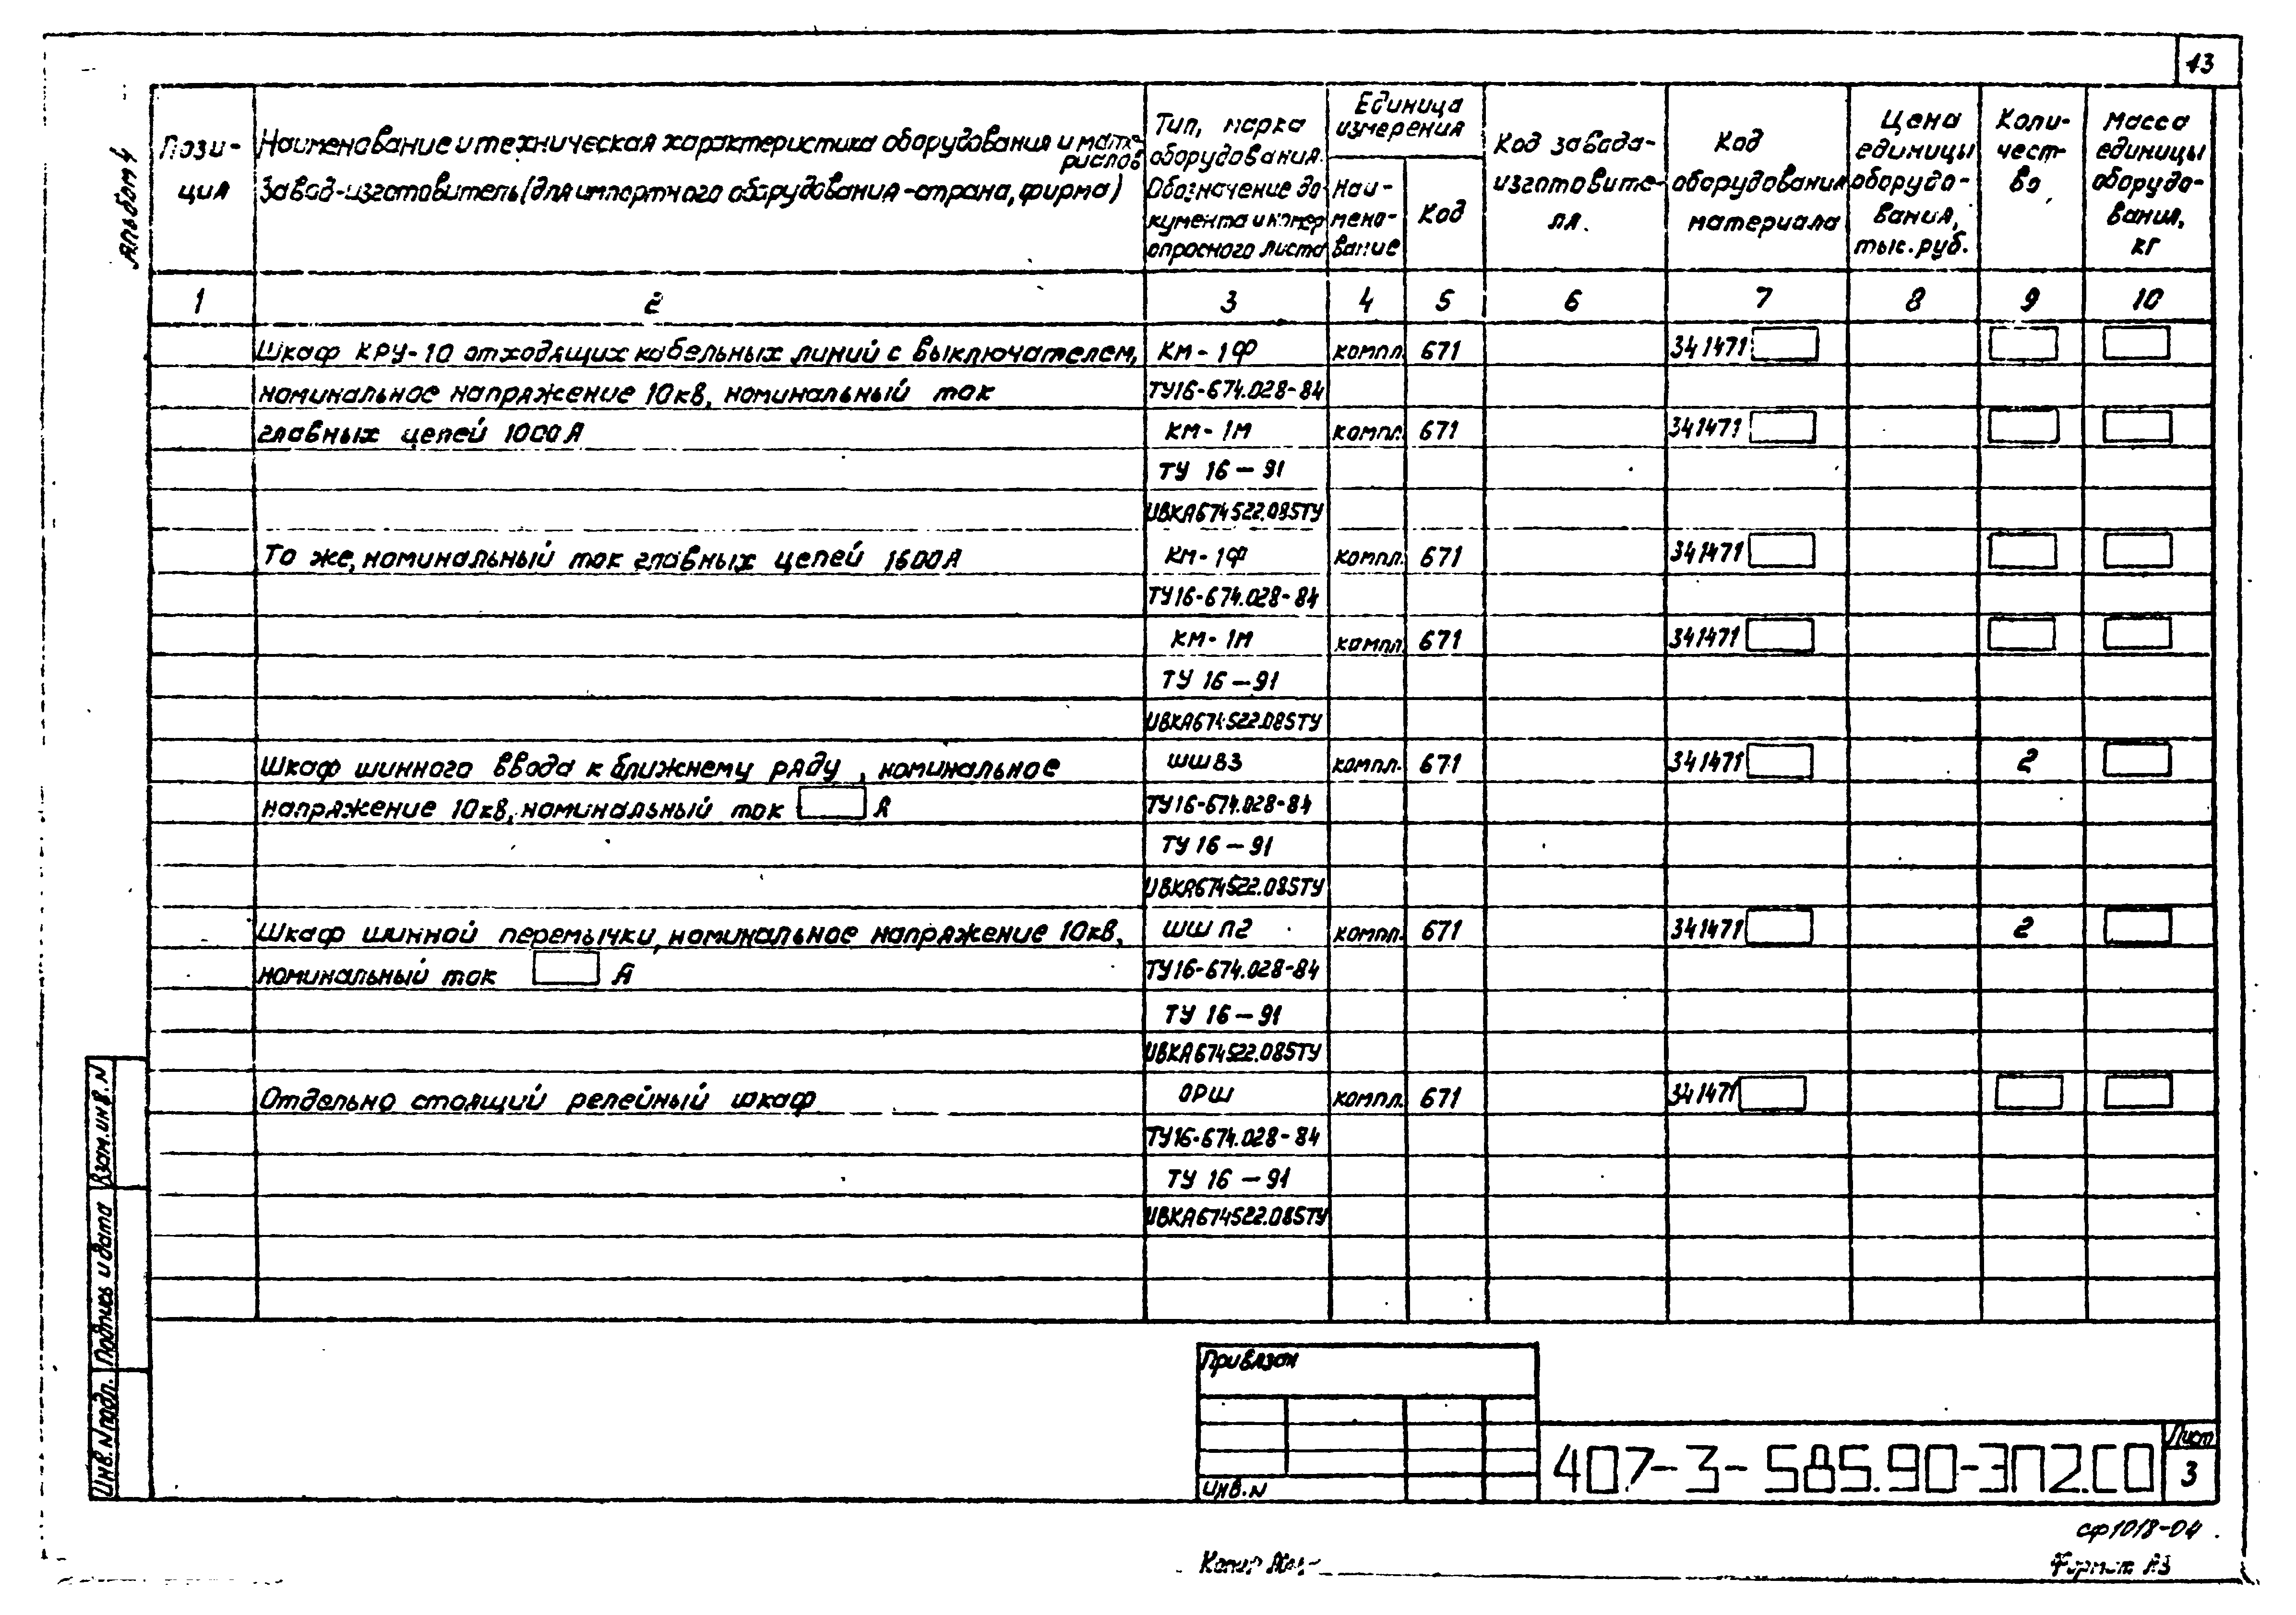 13
Альбом 4
Пози-
ция
Наименование и техническая характеристика оборудования и мате-
риалов
Завод-изготовитель (для импортного оборудования-страна, фирма)
Тип, марка
оборудования.
Обозначение до
кумента и номер
опросного листа
Единица
измерения
Наи-
мено-
вание
Код
Код завода-
изготовите-
ля.
Код
оборудования
материала
Цена
единицы
оборудо-
вания,
тыс. руб.
Коли-
чест-
во
Масса
единицы
оборудо-
вания,
кг
1 2 3 4 5 6 7 8 9 10
Шкаф КРУ-10 отходящих кабельных линий с выключателем, КМ-1Ф компл. 671 341471
номинальное напряжение 10кв, номинальный ток ТУ16-674.028-84
главных цепей 1000А КМ-1М компл. 671 341471
ТУ 16-91
ИВКА674522.085ТУ
То же, номинальный ток главных цепей 1600А КМ-1Ф компл. 671 341471
ТУ16-674.028-84
КМ-1М компл. 671 341471
ТУ 16-91
ИВКА674522.085ТУ
Шкаф шинного ввода к ближнему ряду, номинальное ШШВ3 компл. 671 341471 2
напряжение 10кв, номинальный ток А ТУ16-674.028-84
ТУ 16-91
ИВКА674522.085ТУ
Шкаф шинной перемычки, номинальное напряжение 10кв, ШШП2 компл. 671 341471 2
номинальный ток А ТУ16-674.028-84
ТУ 16-91
ИВКА674522.085ТУ
Отдельно стоящий релейный шкаф ОРШ компл. 671 341471
ТУ16-674.028-84
ТУ 16-91
ИВКА674522.085ТУ
Взам. инв. N
Подпись и дата
Инв. N подл.
Привязан
Инв. N
407-3-585.90-ЭП2.СО
Лист
3
сф1018-04
Формат А3